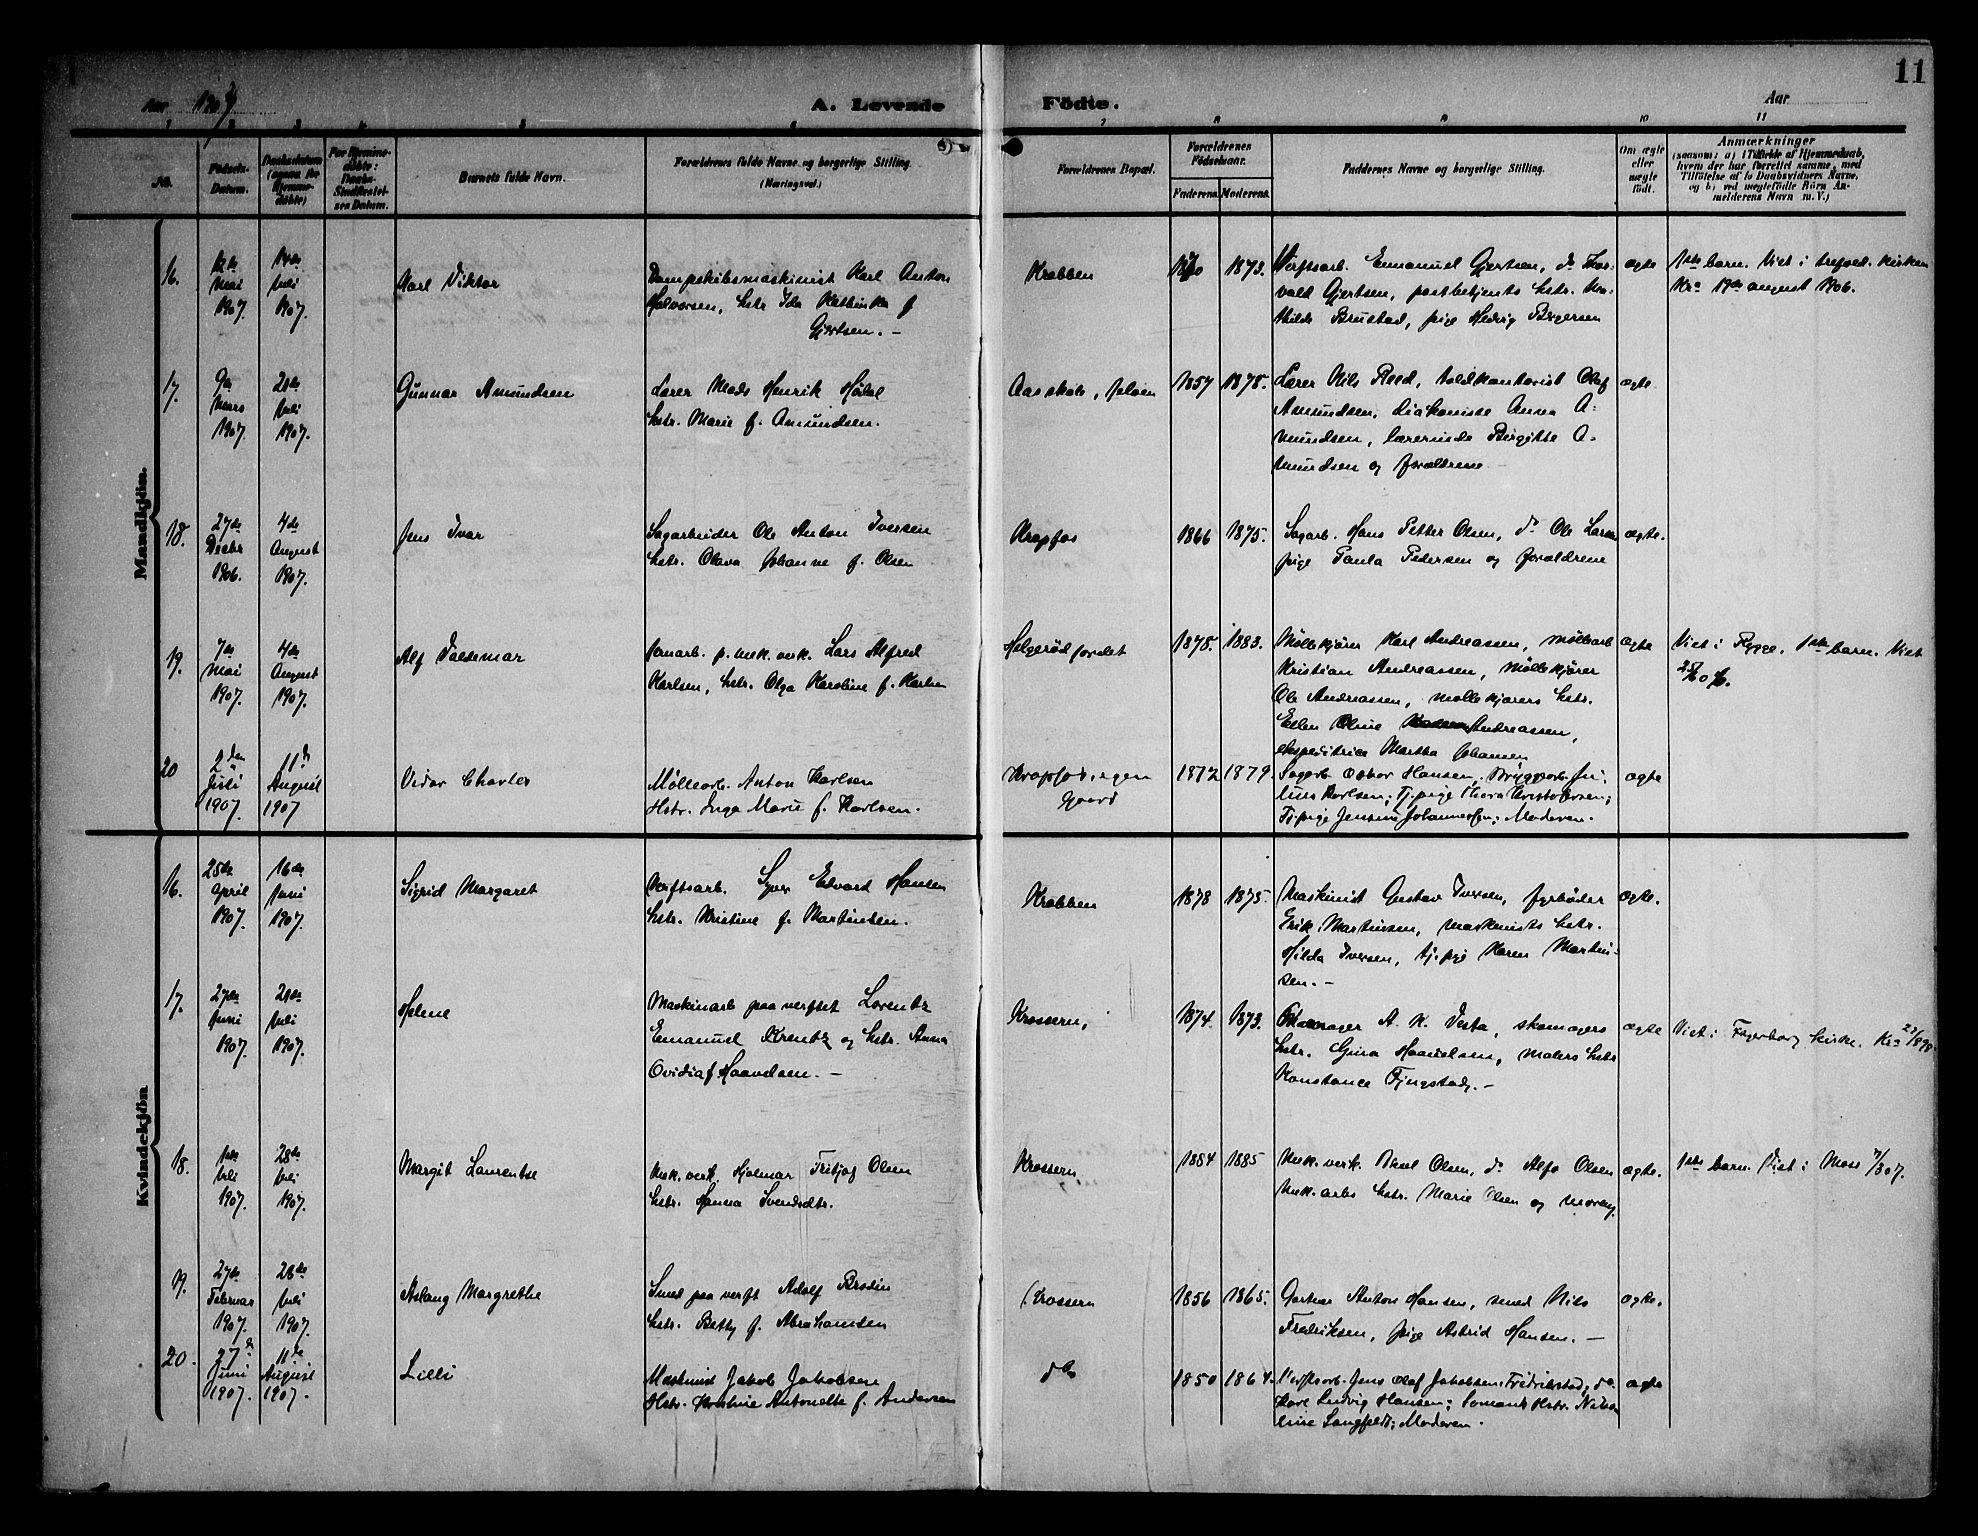 11
Aar 1907
A. Levende
Födte.
Aar
No.
Födsels-Datum.
Daabsdatum
Barnets fulde Navn.
Forældrenes fulde Navne og borgerlige Stilling.
(Næringsvei.)
Forældrenes Bopæl.
Forældrenes Födselsaar.
Faderens. Moderens.
Faddernes Navne og borgerlige Stilling.
Om ægte eller uægte födt.
Anmærkninger
(saasom: a) i Tilfælde af Hjemmedaab,
hvem der har forrettet samme, med
Tilföielse af to Daabsvidners Navne,
og b) ved uægtefödte Börn An-
melderens Navn m. V.)
Mandkjön.
16. 12te Mai 1907. 14de Juli 1907.
Karl Viktor
Dampskibsmaskinist Karl Anton
Halvorsen, hstr. Ida Kathinka f.
Gjertsen. –
Krabben
1870 1873.
Verftsarb. Emanuel Gjertsen, do Thor-
vald Gjertsen, postbetjents hstr. Ma-
thilde Brustad, pige Hedvig Birgersen
ægte
1ste barn. Viet i trefold. kirken
Kra august 1906.
17. 9de Mars 1907. 28de Juli 1907.
Gunnar Amundsen
Lærer Mads Henrik Hödal
hstr. Marie f. Amundsen.
Aas skole, Jeløen
1857 1875.
Lærer Nils Reed, toldkontorist Olaf
Amundsen, diakonisse Anna A-
mundsen, lærerinde Birgitte A-
mundsen og forældrene
ægte
18. 27de Decbr 1906. 4de August 1907.
Jens Ivar
Sagarbeider Ole Anton Iversen
hstr. Olava Johanne f. Olsen
Krapfos
1866 1875.
Sagarb. Hans Petter Olsen, do Ole Larsen
pige Paula Pedersen og forældrene
ægte.
19. 7de Mai 1907. 4de August 1907.
Alf Valdemar
Jernarb. p. mek. verk. Lars Alfred
Karlsen, hstr. Olga Karoline f. Karlsen
Helgerödfordet
1878. 1883.
Möllekjörer Karl Andreassen, möllearb
Kristian Andreassen, möllekjörer
Ole Andreassen, möllekjörers hstr.
Ellen Oline Andreassen,
ekspeditrice Martha Johansen
ægte
Viet i Rygge. 1ste barn. Viet
20 2den Juli 1907. 11te August 1907
Vidar Charles
Möllearb. Anton Karlsen
Hstr. Inga Marie f. Karlsen.
Krapfos, egen
Gaard
1872 1879.
Sagarb. Oskar Hansen, Bryggearb. Ju-
lius Karlsen; Tj.pige Thora Kristoffersen;
Tj.pige Jensine Johannesen; Moderen.
ægte
Kvindekjön
16. 28de April 1907. 16de Juni 1907.
Sigrid Margaret
Verftsarb. Syver Edvard Hansen
hstr. Kristine f. Martinsen.
Krabben
1878 1875.
Maskinist Gustav Iversen, fyrböder
Erik Martinsen, maskinists hstr.
Hilda Iversen, tj.pige Karen Martin-
sen. –
ægte.
17. 27de Juni 1907. 28de Juli 1907.
Helene
Maskinarb paa verftet Lorentz
Emanuel Krentz og hstr. Anna
Ovidia f. Haavelsen. –
Krossern,
1874. 1873.
A. K. Vesta, skomagers
hstr. Gina Haavelsen, malers hstr
Konstance Fjugstad. –
ægte
Viet i Fagerborg kirke. Kra
18. 1ste Juli 1907. 28de Juli 1907.
Margit Laurentse
Mek. verk. Hjalmar Fritjof Olsen
hstr. Hanna Svendsdtr.
Krossern
1884 1885
Mek. verk. Olsen, do Alfo Olsen
Mek. arbs hstr. Marie Olsen og
ægte.
1ste barn. Viet i Moss
19. 27de Februar 1907. 28de Juli 1907.
Aslaug Margrethe
Smed paa verft Adolf Brodin
hstr. Betty f. Abrahamsen
Krossern
1856 1865.
Gartner Anton Hansen, smed Nils
Fredriksen, pige Astrid Hansen. –
ægte.
20. 27de Juni 1907. 11te August 1907.
Lilli
Maskinist Jakob Jakobsen
Hstr. Kristine Antonette f. Andersen
do
1850 1864.
Verftsarb. Jens Olaf Jakobsen, Fredrikstad; do.
Karl Ludvig Hansen; Sömands Hstr.
Langfeldt; Moderen.
ægte